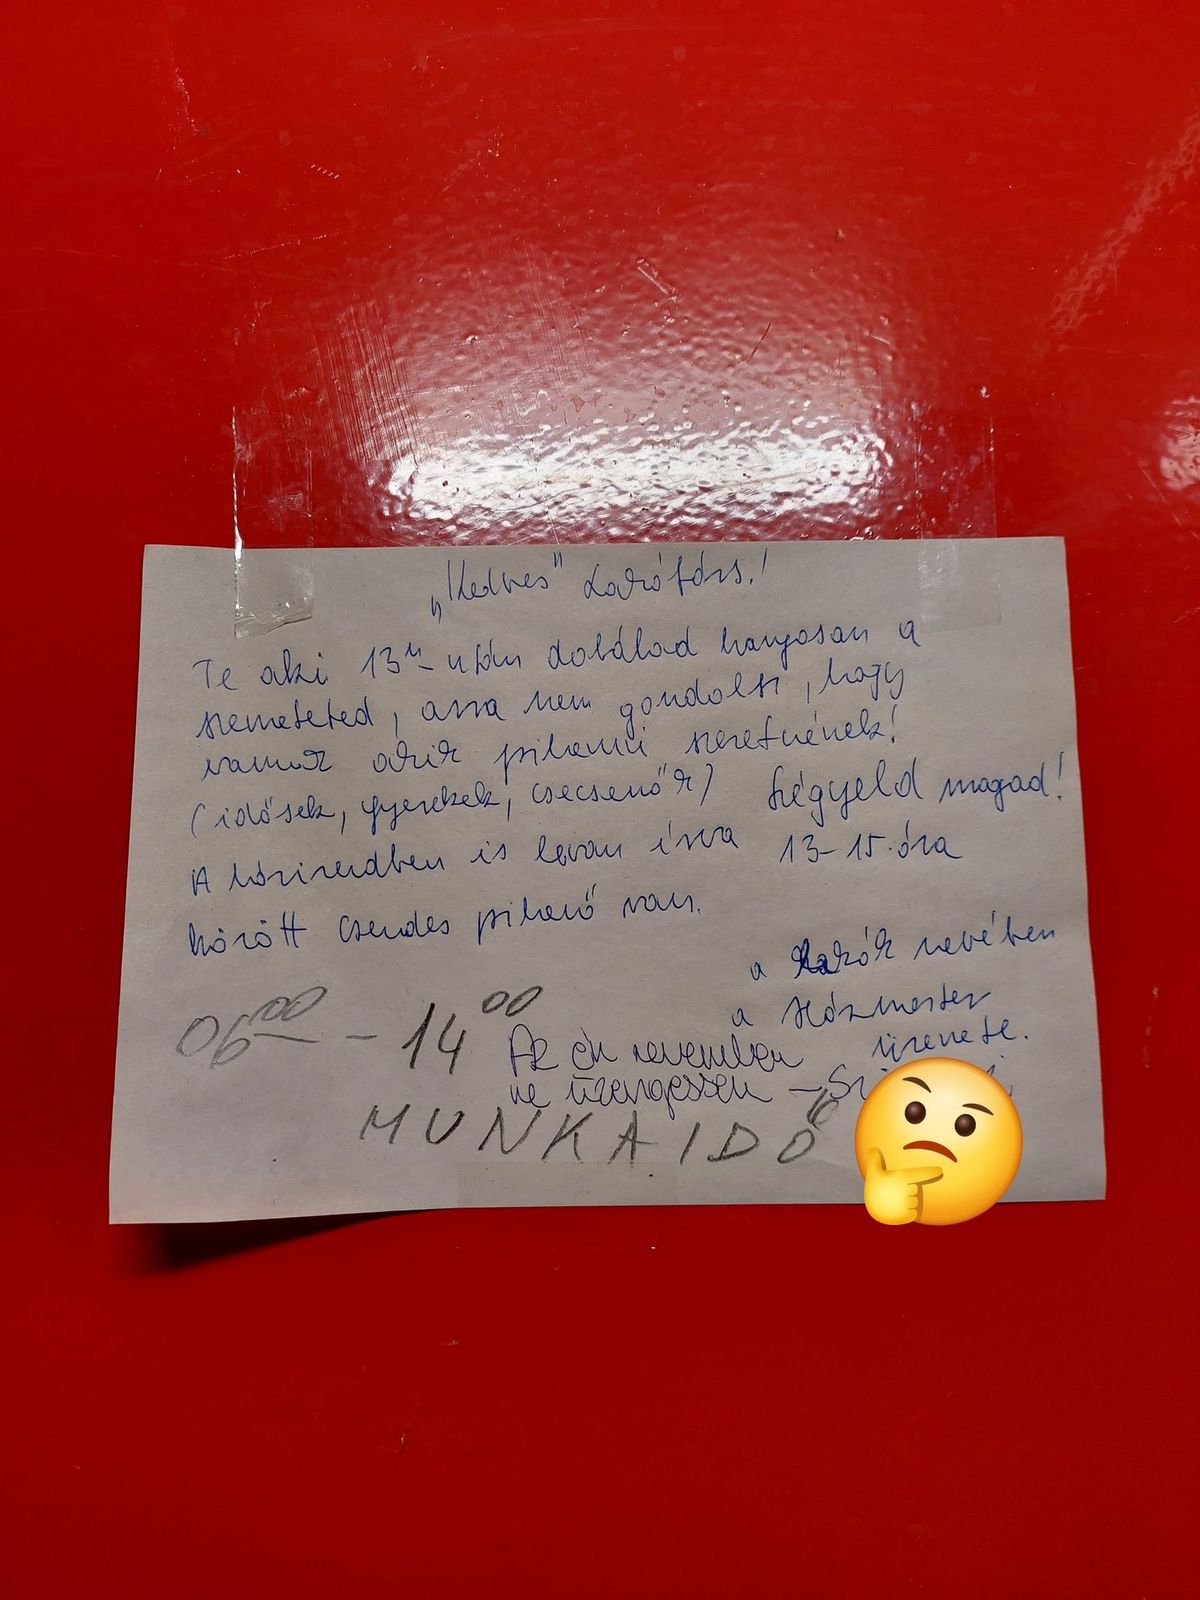 „Kedves” Lakótárs!
Te aki 13h után dobálod hangosan a
szemeted, arra nem gondolsz, hogy
vannak akik pihenni szeretnének!
(idősek, gyerekek, csecsemők) Szégyeld magad!
A házirendben is levan írva 13-15 óra
között csendes pihenő van.
a lakók nevében
a Házmester
üzenete.
06 00 - 14 00
Az én nevemben
ne üzengessen -
MUNKAIDŐ